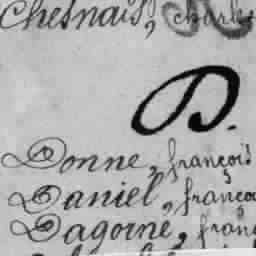 Chesnais, charles
D.
Donne, françois
Daniel, franço
Dagorne, fran